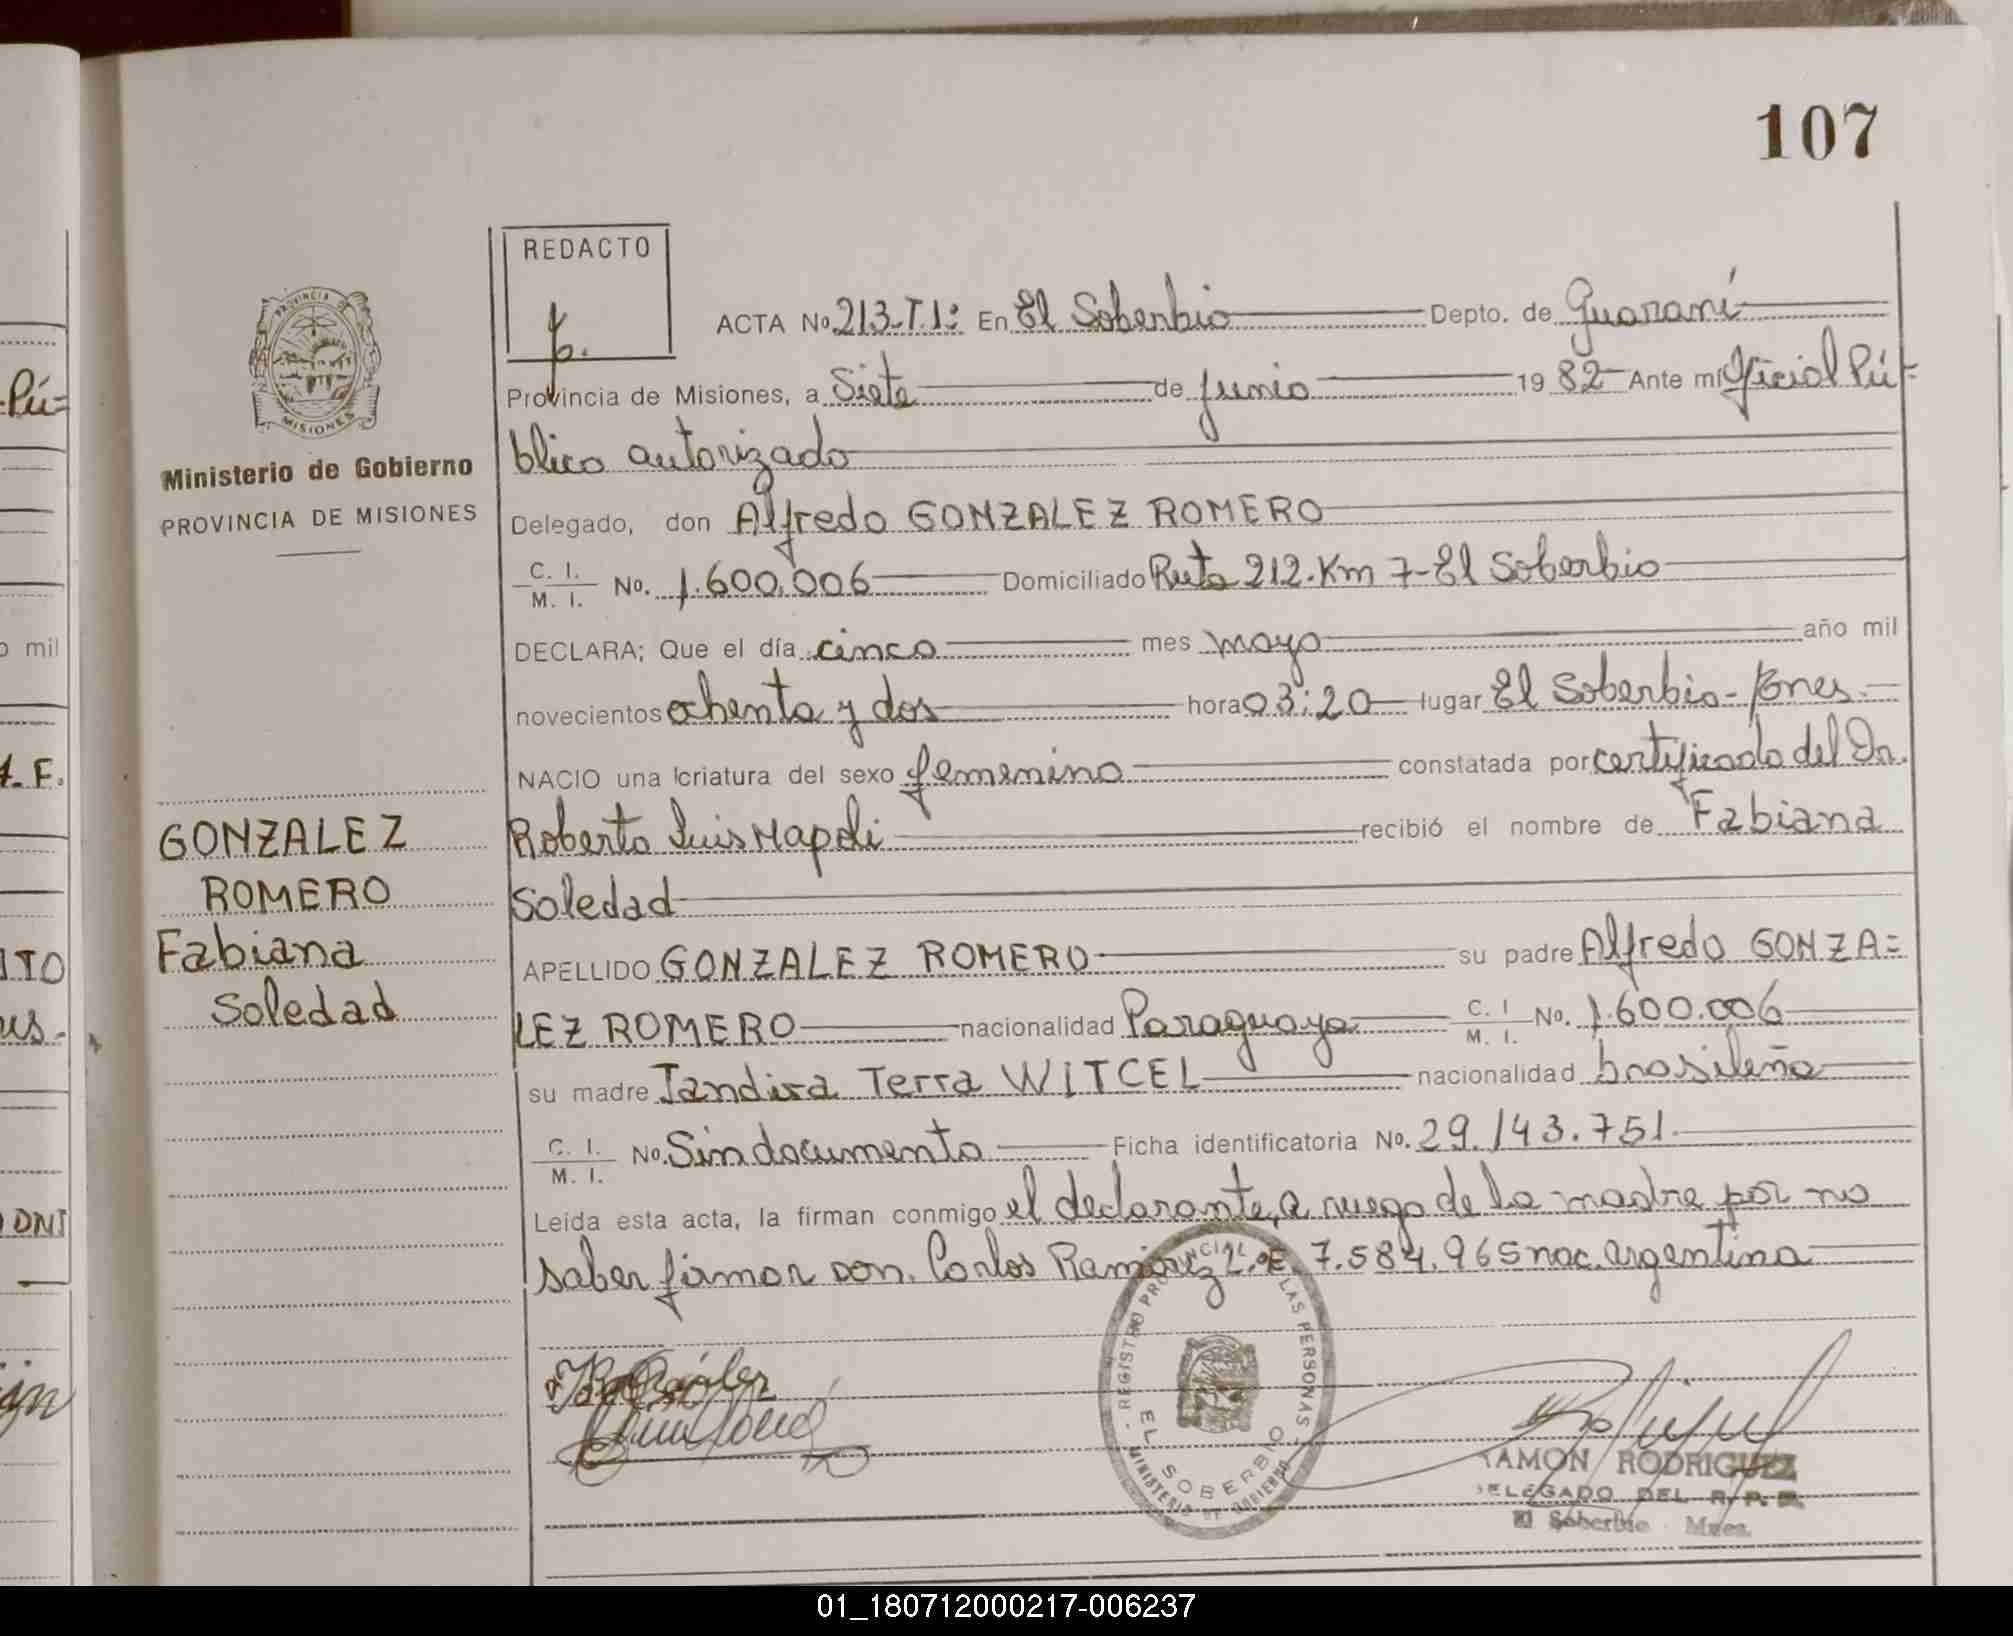 107
REDACTO
ACTA No 213-T.1º En El Soberbio Depto. de Guaraní
Provincia de Misiones, a Siete de junio 19 82 Ante mi Oficial Pú=
blico autorizado
Delegado, don Alfredo GONZALEZ ROMERO
C. I. / M. I. No. 1.600.006 Domiciliado Ruta 212. Km 7- El Soberbio
DECLARA; Que el día cinco mes mayo año mil
novecientos ochenta y dos hora 03:20 lugar El Soberbio-
NACIO una criatura del sexo femenino constatada por certificado del Dr.
Roberto Luis Napoli recibió el nombre de Fabiana
Soledad
APELLIDO GONZALEZ ROMERO su padre Alfredo GONZA=
LEZ ROMERO nacionalidad Paraguaya C. I / M. I. No. 1.600.006
su madre Jandira Terra WITCEL nacionalidad brasileña
C. I. / M. I. No. Sin documento Ficha identificatoria No. 29.143.751.
Leida esta acta, la firman conmigo el declarante, a ruego de la madre por no
saber firmar don. Carlos Ramirez L.E. 7.584.965 nac. argentina
PROVINCIA DE
MISIONES
Ministerio de Gobierno
PROVINCIA DE MISIONES
GONZALEZ
ROMERO
Fabiana
Soledad
REGISTRO PROVINCIAL DE LAS PERSONAS
EL SOBERBIO
MINISTERIO DE GOBIERNO
RAMON RODRIGUEZ
DELEGADO DEL R. P. P.
El Soberbio Mnes.
Pú=
o mil
F.
ITO
us.
DNI
01_180712000217-006237